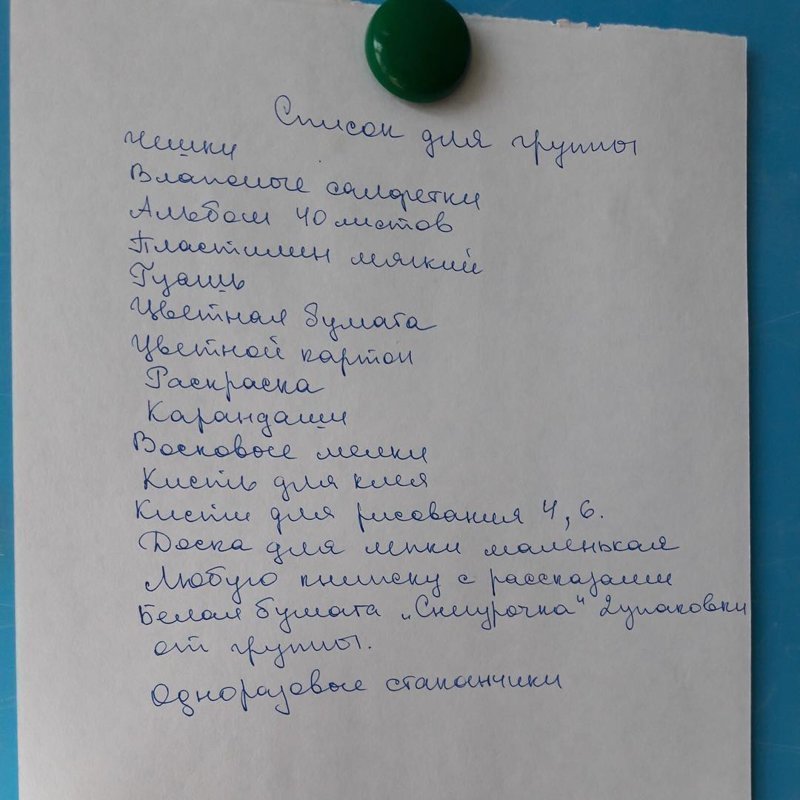 Список для группы
чешки
Влапсные салфетки
Альбом 40 листов
Пластилин мягкий
Гуашь
Цветная бумага
Цветной картон
Раскраска
Карандаши
Восковые мелки
Кисть для клея
Кисти для рисования 4, 6.
Доска для лепки маленькая
Любую книжку с рассказами
Белая бумага „Снегурочка" 2упаковки
от группы.
Одноразовые стаканчики